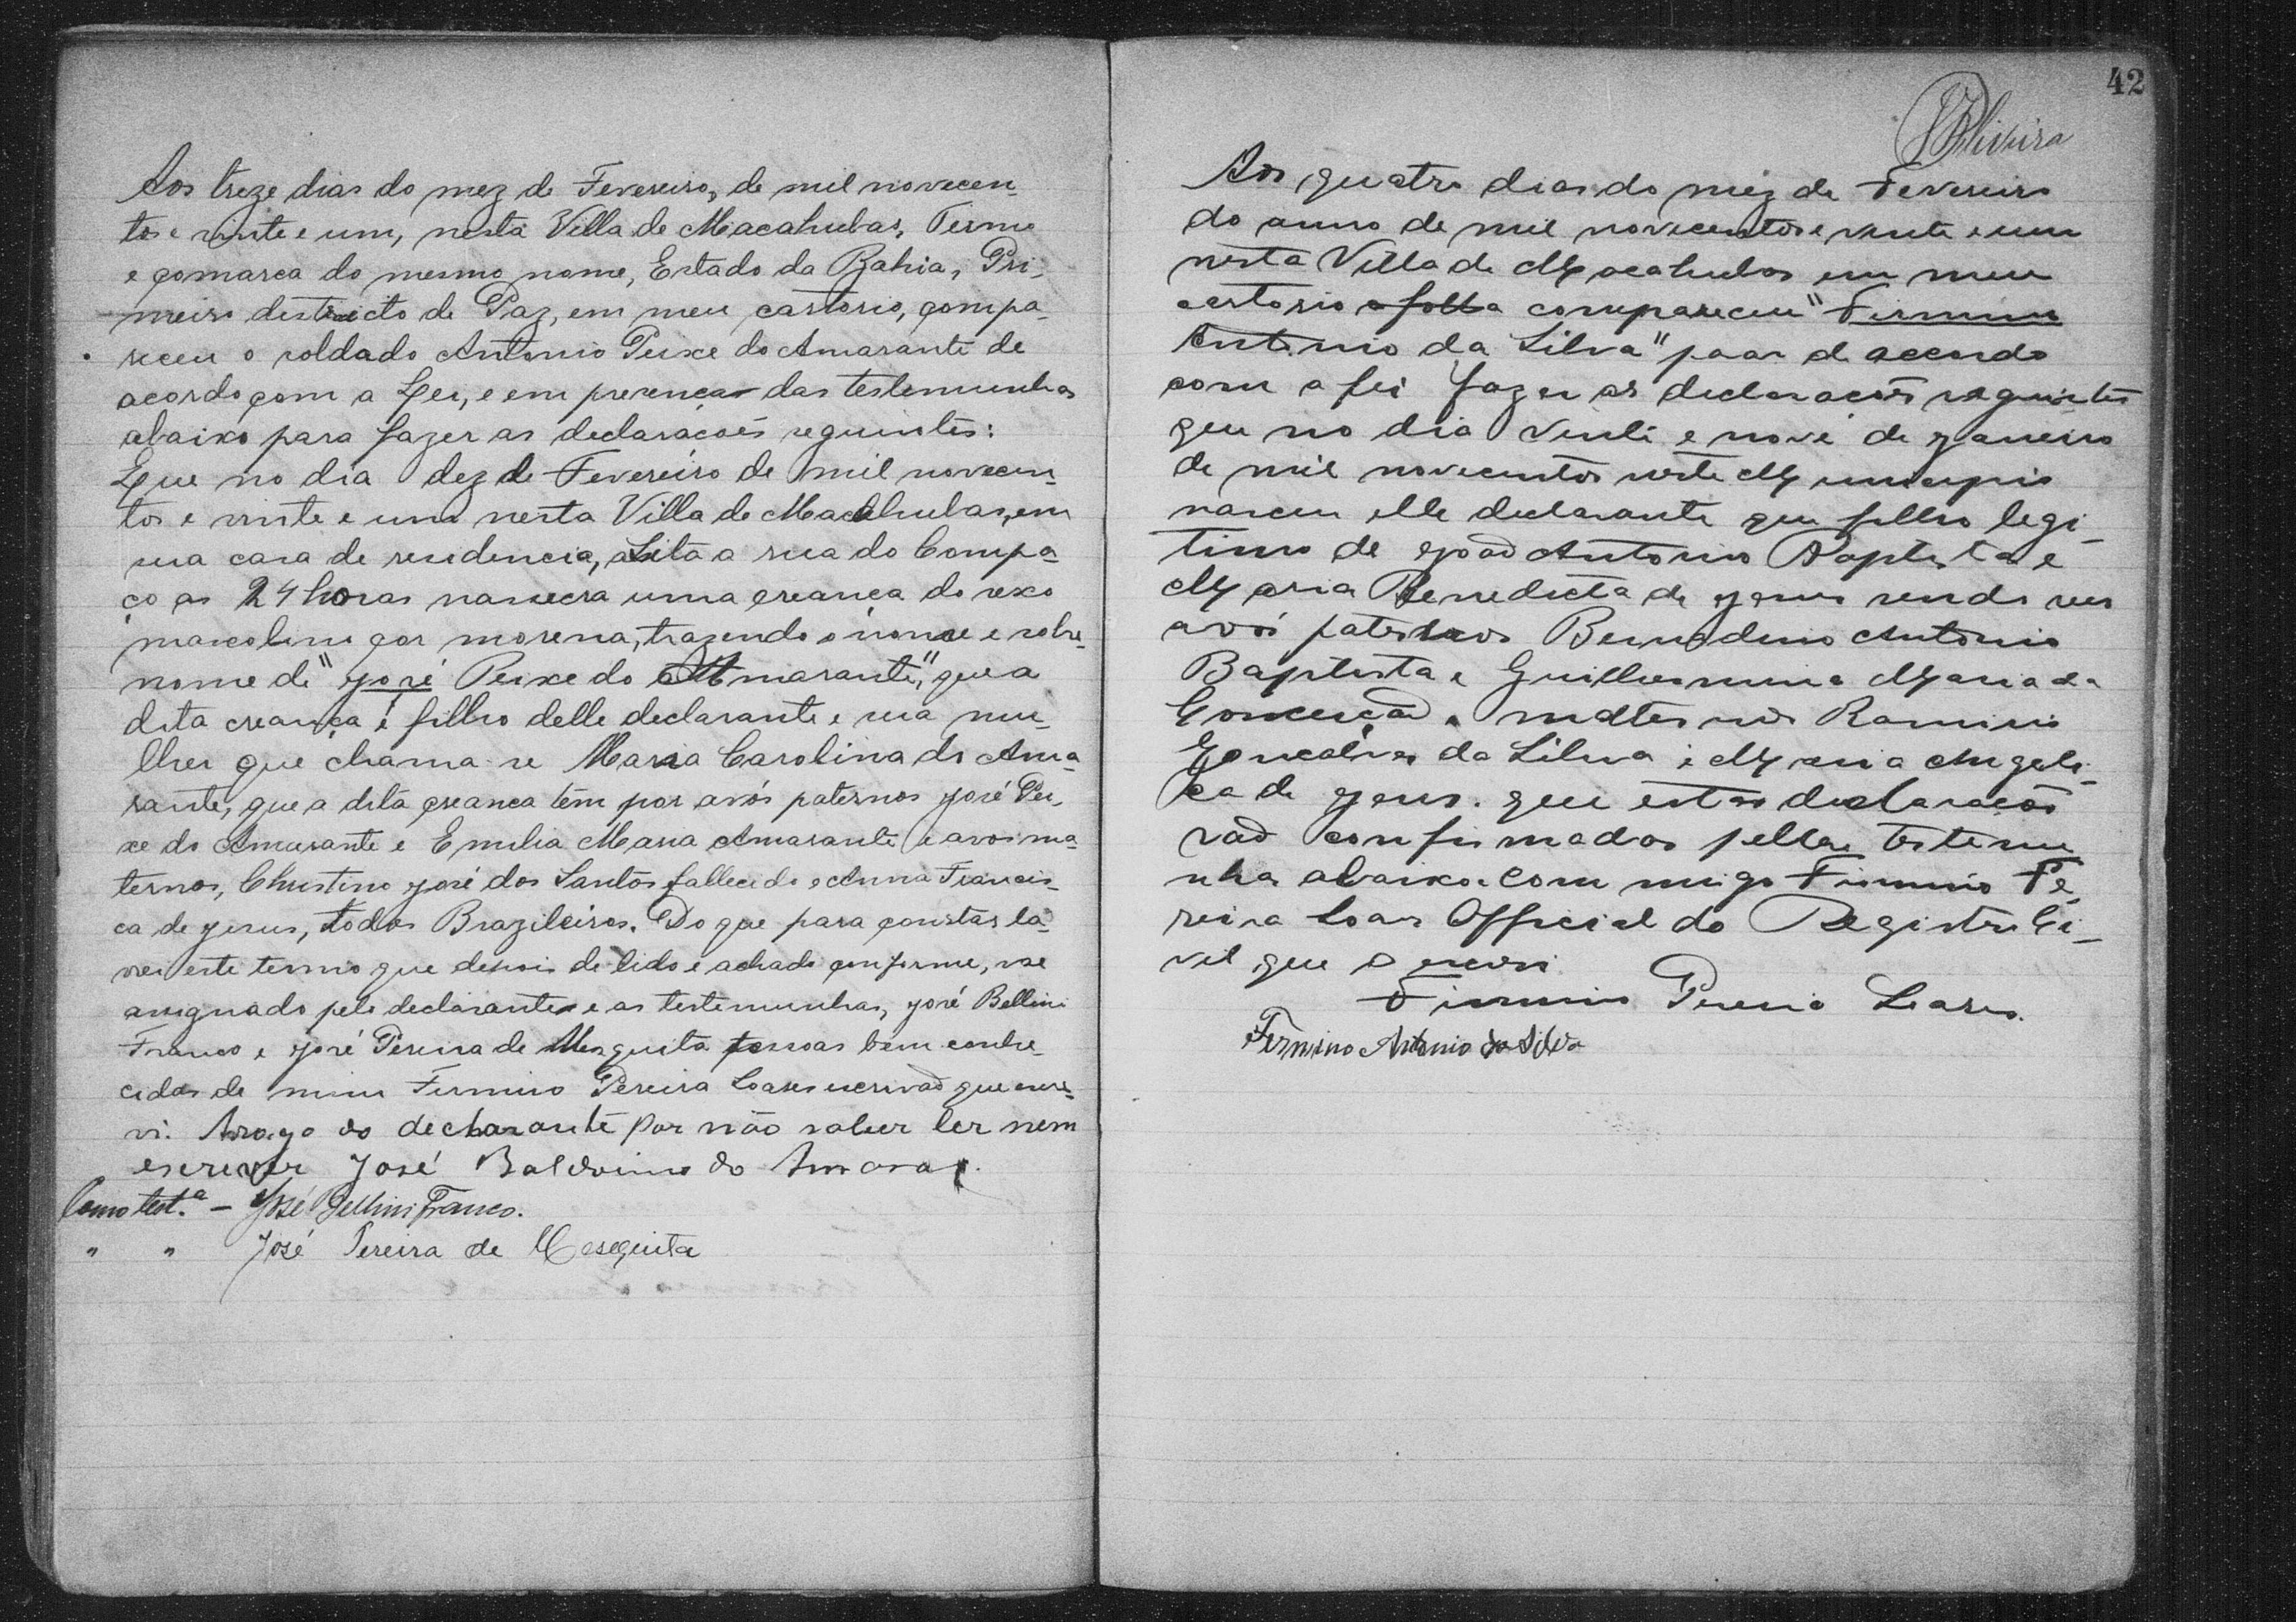 Aos treze dias do mez de Fevereiro, de mil novecen-
tos e vinte e um, nesta Villa de Macahubas, Termo
e comarca do mesmo nome, Estado da Bahia, Pri-
meiro destricto de Paz, em meu cartorio, compa-
receu o soldado Antonio Peixe do Amarante de
acordo com a Lei, e em presença das testemunhas
abaixo para fazer as declaraçoẽs seguintes:
Que no dia dez de Fevereiro de mil novecen-
tos e vinte e um nesta Villa de Macahubas, em
sua casa de residencia, asita a rua do Compa-
ço as 24 horas nascera uma creança do sexo
mascolino cor morena, trazendo o nome e sobre-
nome de "José Peixe do Amarante", que a
dita creança é filho delle declarante e sua mu-
lher que chama-se Maria Carolina do Ama-
rante, que a dita creanca têm por avós paternos José Pei-
xe do Amarante e Emilia Maria Amarante e avos ma-
ternos, Christino José dos Santos fallecido e Anna Francis-
ca de Jesus, todos Brazileiros. Do que para constar la-
vrei este termo que depois de lido e achado conforme, vae
assignado pelo declarante e as testemunhas, José Bellini
Franco e José Pereira de Mesquita pessoas bem conhe-
cidas de mim Firmino Pereira Soares escrivaõ que escre-
vi. Arogo do declarante por não saber ler nem
escrever José Baldoino do Amaral.
Como test.ª – José Bellini Franco.
" " José Pereira de Mesquita
42
Oliveira
Aos quatro dias do mez de Fevereiro
do anno de mil novecentos e vinte e um
nesta Villa de Macahubas em meu
cartorio compareceu "Firmino
Antonio da Silva" paar de accordo
com a Lei fazer as declaracoẽs seguintes
que no dia vinte e nove de Janeiro
de mil novecentos neste Municipio
nasceu elle declarante que filho legi-
timo de Joaõ Antonio Baptista e
Maria Benedicta de Jesus sendo seus
avós paternos Bernadino Antonio
Baptista e Guilhermina Maria da
Conceiçaõ e maternos Ramiro
Goncalves da Silva e Maria Angeli-
ca de Jesus. que estas declaracoẽs
saõ confirmados pellas testemu
nhas abaixo. Com migo Firmino Pe-
reira Soar Official do Registro Ci-
vil que o escrevi
Firmino Pereira Soares.
Firmino Antonio da Silva